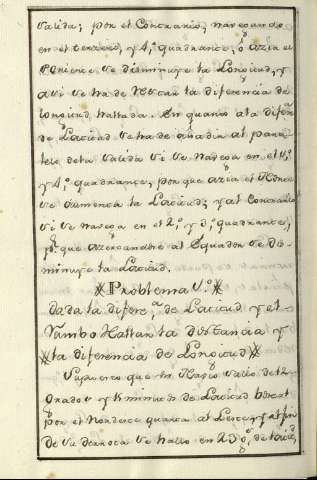 Salida; por el Contrario, navegando
en el tercero, y 4.º quadrante, o azia el
Poniente se disminuye la Longitud, y
asi se ha de Restar la diferencia de
Longitud hallada. En quanto ala difer.ª
de Latitud se ha de añadir al para-
lelo dela Salida si se navega en el 1.º
y 4.º quadrante, por que azia el Norte
se aumenta la Latitud; y al Contrario
si se navega en el 2.º y 3.º quadrante,
p.r que azercandose al Equador se dis-
minuye la Latitud.
Problema V.º
Dada la difere.ª de Latitud y el
Rumbo Hallar la distancia y
la diferencia de Longitud
Supuesto que un Navio salio de
Grados y minutos de Latitud
por el Nordeste quarta al Leste, y al fin
de su derrota se hallo en 23 g.s de latitd,